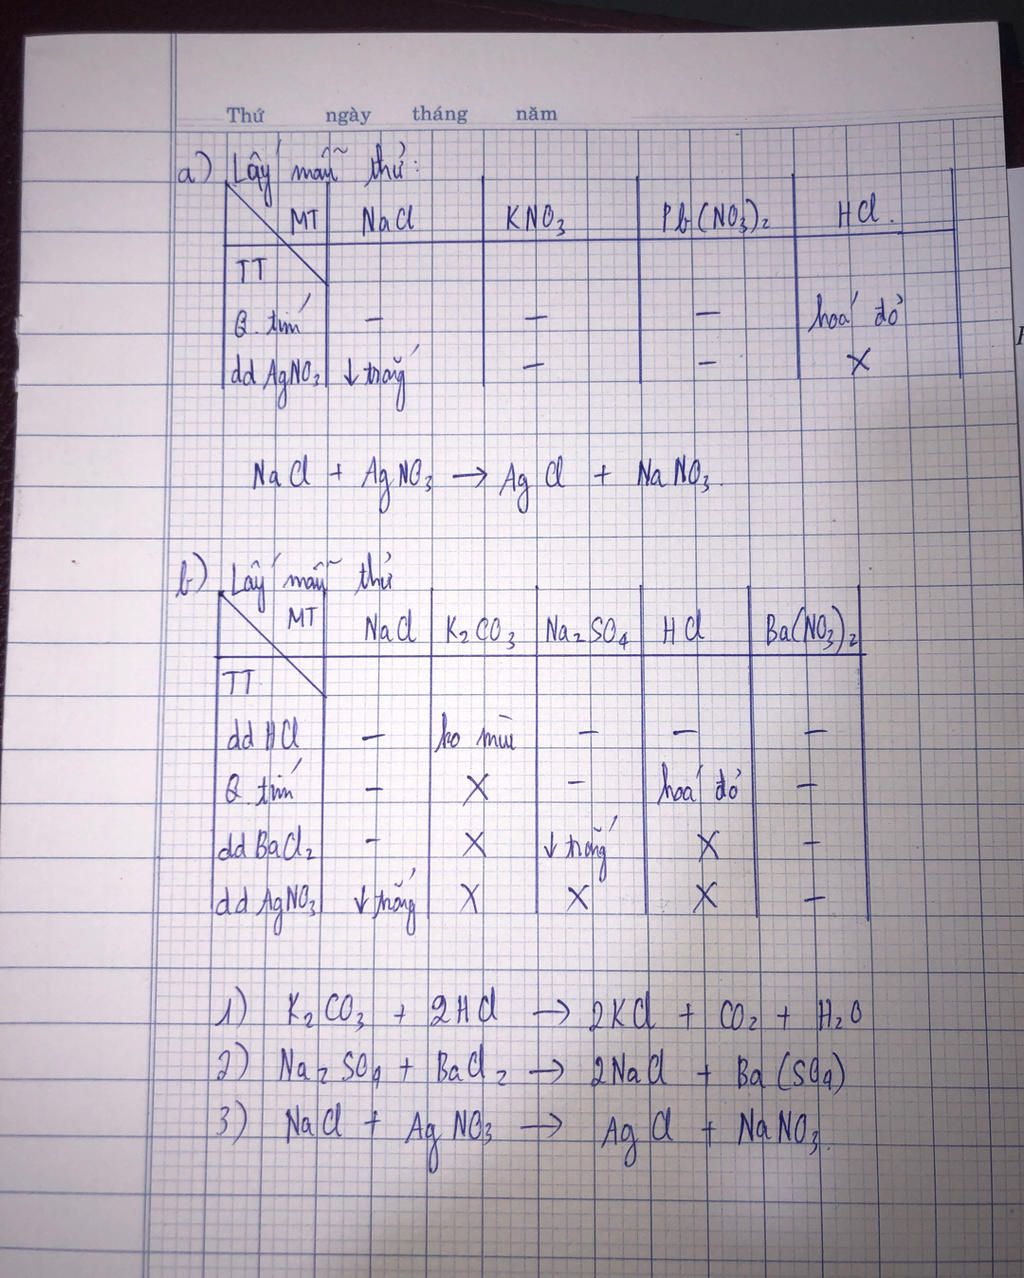 Thứ ngày tháng năm
a) Lấy mẫu thử:
MT NaCl KNO₃ Pb(NO₃)₂ HCl.
TT
Q. tím – – – hoá đỏ
dd AgNO₃ ↓ trắng – – X
NaCl + AgNO₃ → AgCl + NaNO₃.
b) Lấy mẫu thử
MT NaCl K₂CO₃ Na₂SO₄ HCl Ba(NO₃)₂
TT
dd HCl – ko mùi – – –
Q. tím – X – hoá đỏ –
dd BaCl₂ – X ↓ trắng X –
dd AgNO₃ ↓ trắng X X X –
1) K₂CO₃ + 2HCl → 2KCl + CO₂ + H₂O
2) Na₂SO₄ + BaCl₂ → 2NaCl + Ba(SO₄)
3) NaCl + AgNO₃ → AgCl + NaNO₃.